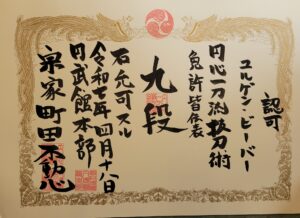 認可
ユルゲン・ビーバー
円心一刀流抜刀術
免許皆伝表
九段
右允可スル
令和七年四月十八日
円武館本部
宗家町田不動心